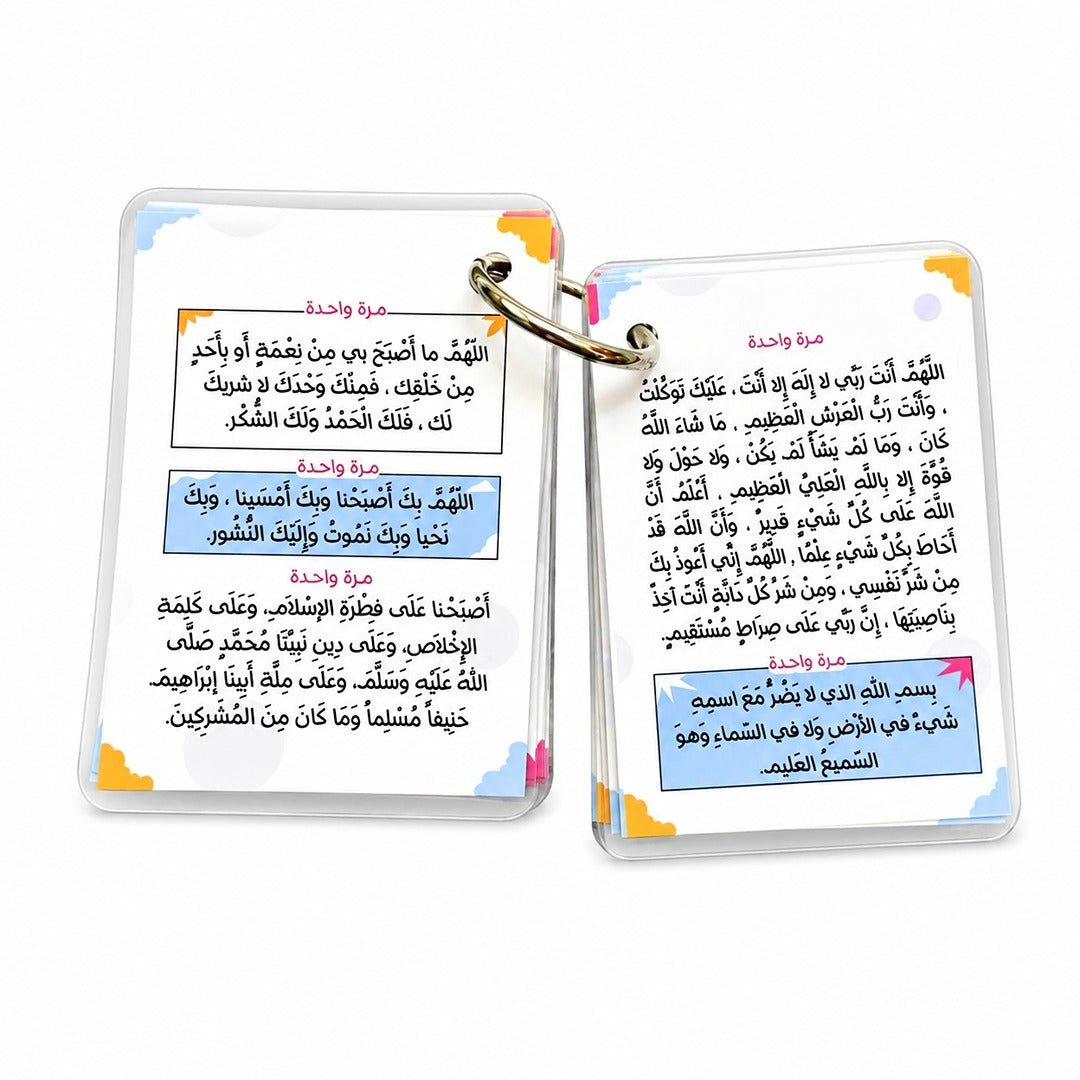 مرة واحدة
اللَّهُمَّ أَنْتَ رَبِّي لا إِلَهَ إِلا أَنْتَ ، عَلَيْكَ تَوَكَّلْتُ
، وَأَنْتَ رَبُّ الْعَرْشِ الْعَظِيمِ ، مَا شَاءَ اللَّهُ
كَانَ ، وَمَا لَمْ يَشَأْ لَمْ يَكُنْ ، وَلا حَوْلَ وَلا
قُوَّةَ إِلا بِاللَّهِ الْعَلِيِّ الْعَظِيمِ ، أَعْلَمُ أَنَّ
اللَّهَ عَلَى كُلِّ شَيْءٍ قَدِيرٌ ، وَأَنَّ اللَّهَ قَدْ
أَحَاطَ بِكُلِّ شَيْءٍ عِلْمًا , اللَّهُمَّ إِنِّي أَعُوذُ بِكَ
مِنْ شَرِّ نَفْسِي ، وَمِنْ شَرِّ كُلِّ دَابَّةٍ أَنْتَ آخِذٌ
بِنَاصِيَتِهَا ، إِنَّ رَبِّي عَلَى صِرَاطٍ مُسْتَقِيمٍ.
مرة واحدة
بِسمِ اللهِ الذي لا يَضُرُّ مَعَ اسمِهِ
شَيءٌ في الأرْضِ وَلا في السّماءِ وَهوَ
السّميعُ العَليم.
مرة واحدة
اللّهُمَّ ما أَصْبَحَ بي مِنْ نِعْمَةٍ أَو بِأَحَدٍ
مِنْ خَلْقِك ، فَمِنْكَ وَحْدَكَ لا شريكَ
لَك ، فَلَكَ الْحَمْدُ وَلَكَ الشُّكْر.
مرة واحدة
اللّهُمَّ بِكَ أَصْبَحْنا وَبِكَ أَمْسَينا ، وَبِكَ
نَحْيا وَبِكَ نَمُوتُ وَإِلَيْكَ النُّشُور.
مرة واحدة
أَصْبَحْنا عَلَى فِطْرَةِ الإسْلامِ، وَعَلَى كَلِمَةِ
الإِخْلاصِ، وَعَلَى دِينِ نَبِيِّنَا مُحَمَّدٍ صَلَّى
اللهُ عَلَيْهِ وَسَلَّمَ، وَعَلَى مِلَّةِ أَبِينَا إبْرَاهِيمَ،
حَنِيفاً مُسْلِماً وَمَا كَانَ مِنَ المُشْرِكِينَ.